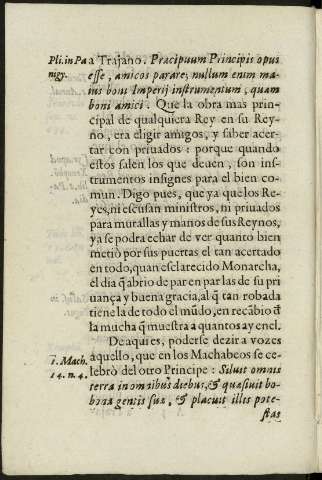 Pli. in Pa a Trajano. Præcipuum Principis opus
nigy. esse, amicos parare; nullum enim ma-
ius boni Imperij instrumentum, quam
boni amici. Que la obra mas prin-
cipal de qualquiera Rey en su Rey-
no, era eligir amigos, y saber acer-
tar con priuados: porque quando
estos salen los que deuen, son ins-
trumentos insignes para el bien co-
mun. Digo pues, que ya que los Re-
yes, ni escusan ministros, ni priuados
para murallas y manos de sus Reynos,
ya se podra echar de ver quanto bien
metiò por sus puertas el tan acertado
en todo, quan esclarecido Monarcha,
el dia q̃ abrio de par en par las de su pri
uança y buena gracia, al q̃ tan robada
tiene la de todo el mũdo, en recãbio đ
la mucha q̃ muestra a quantos ay en el.
De aqui es, poderse dezir a vozes
1. Mach. aquello, que en los Machabeos se ce-
14. n. 4. lebrò del otro Principe: Siluit omnis
terra in omnibus diebus, & quæsiuit bo-
bona gentis suæ, & placuit illis pote-
stas